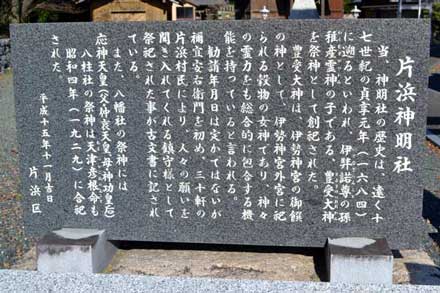 片浜神明社
当、神明社の歴史は、遠く十
七世紀の貞享元年(一六八四)
に遡るといわれ、伊弉諾尊の孫
稚産霊神の子である、豊受大神
を祭神として創祀された。
豊受大神は、伊勢神宮の御饌
の神として、伊勢神宮外宮に祀
られる穀物の女神であり、神々
の霊力をも総合的に包合する機
能を持っていると言われる。
勧請年月日は定かではないが
禰宜安右衛門を初め、三十軒の
片浜村民により、人々の願いを
聞き入れてくれる鎮守様として
祭祀された事が古文書に記され
ている。
また、八幡社の祭神には
応神天皇(父仲哀天皇、母神功皇后)
八柱社の祭神は天津彦根命も
昭和四年(一九二九)に合祀
された。
平成十五年十一月吉日
片浜区